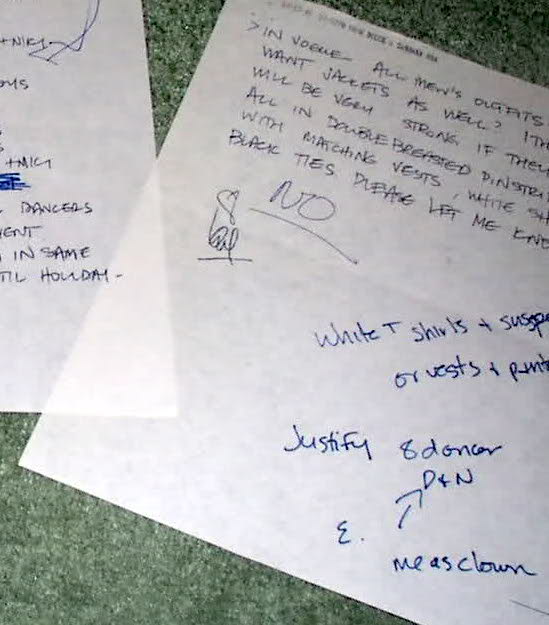 +NIKI
+NIKI
DANCERS
IN SAME
TIL HOLIDAY-
>IN VOGUE ALL MEN'S OUTFITS
WANT JACKETS AS WELL? I TH
WILL BE VERY STRONG IF THEY
ALL IN DOUBLE BREASTED PINSTRI
WITH MATCHING VESTS, WHITE SH
BLACK TIES. PLEASE LET ME KNO
NO
8
White T shirts + suspe
or vests + pants
Justify 8 dancer
D+N
E.
me as clown